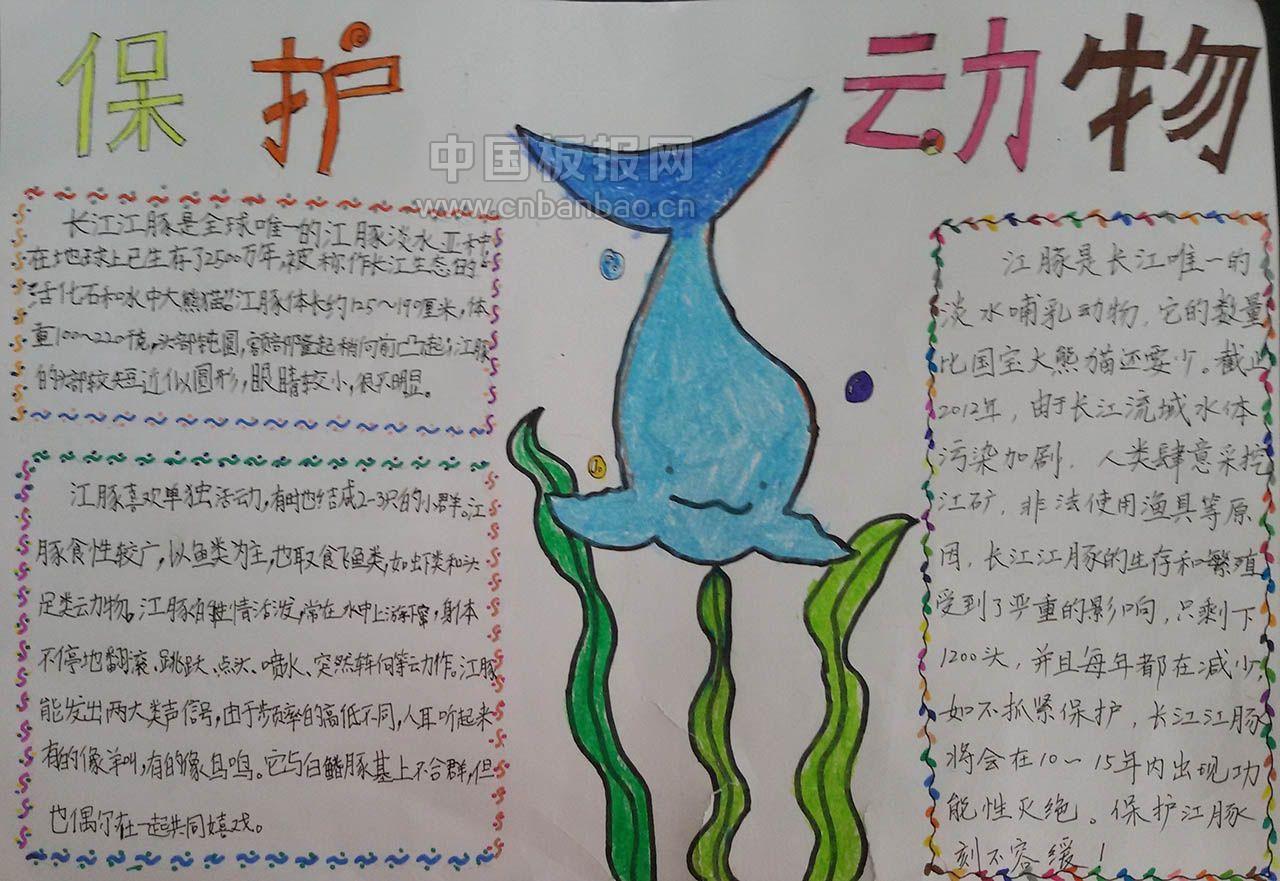 保护
动物
中国板报网
www.cnbanbao.cn
长江江豚是全球唯一的江豚淡水亚种,
在地球上已生存了2500万年,被称作长江生态的“
活化石和水中大熊猫”江豚体长约125~190厘米,体
重100~220千克,头部钝圆,额部隆起稍向前凸起;江豚
的头部较短近似圆形,眼睛较小,很不明显。
江豚喜欢单独活动,有时也结成2-3只的小群。江
豚食性较广,以鱼类为主,也取食飞鱼类,如虾类和头
足类云力物。江豚的性情活泼,常在水中上游下窜,身体
不停地翻滚、跳跃、点头、喷水、突然转向等云力作。江豚
能发出两大类声信号,由于频率的高低不同,人耳听起来
有的像羊叫,有的像鸟鸣。它与白鱀豚基上不合群,但
也偶尔在一起共同嬉戏。
江豚是长江唯一的
淡水哺乳动物,它的数量
比国宝大熊猫还要少。截止
2012年,由于长江流域水体
污染加剧,人类肆意采挖
江矿,非法使用渔具等原
因,长江江豚的生存和繁殖
受到了严重的影响,只剩下
1200头,并且每年都在减少,
如不抓紧保护,长江江豚
将会在10~15年内出现功
能性灭绝。保护江豚
刻不容缓!